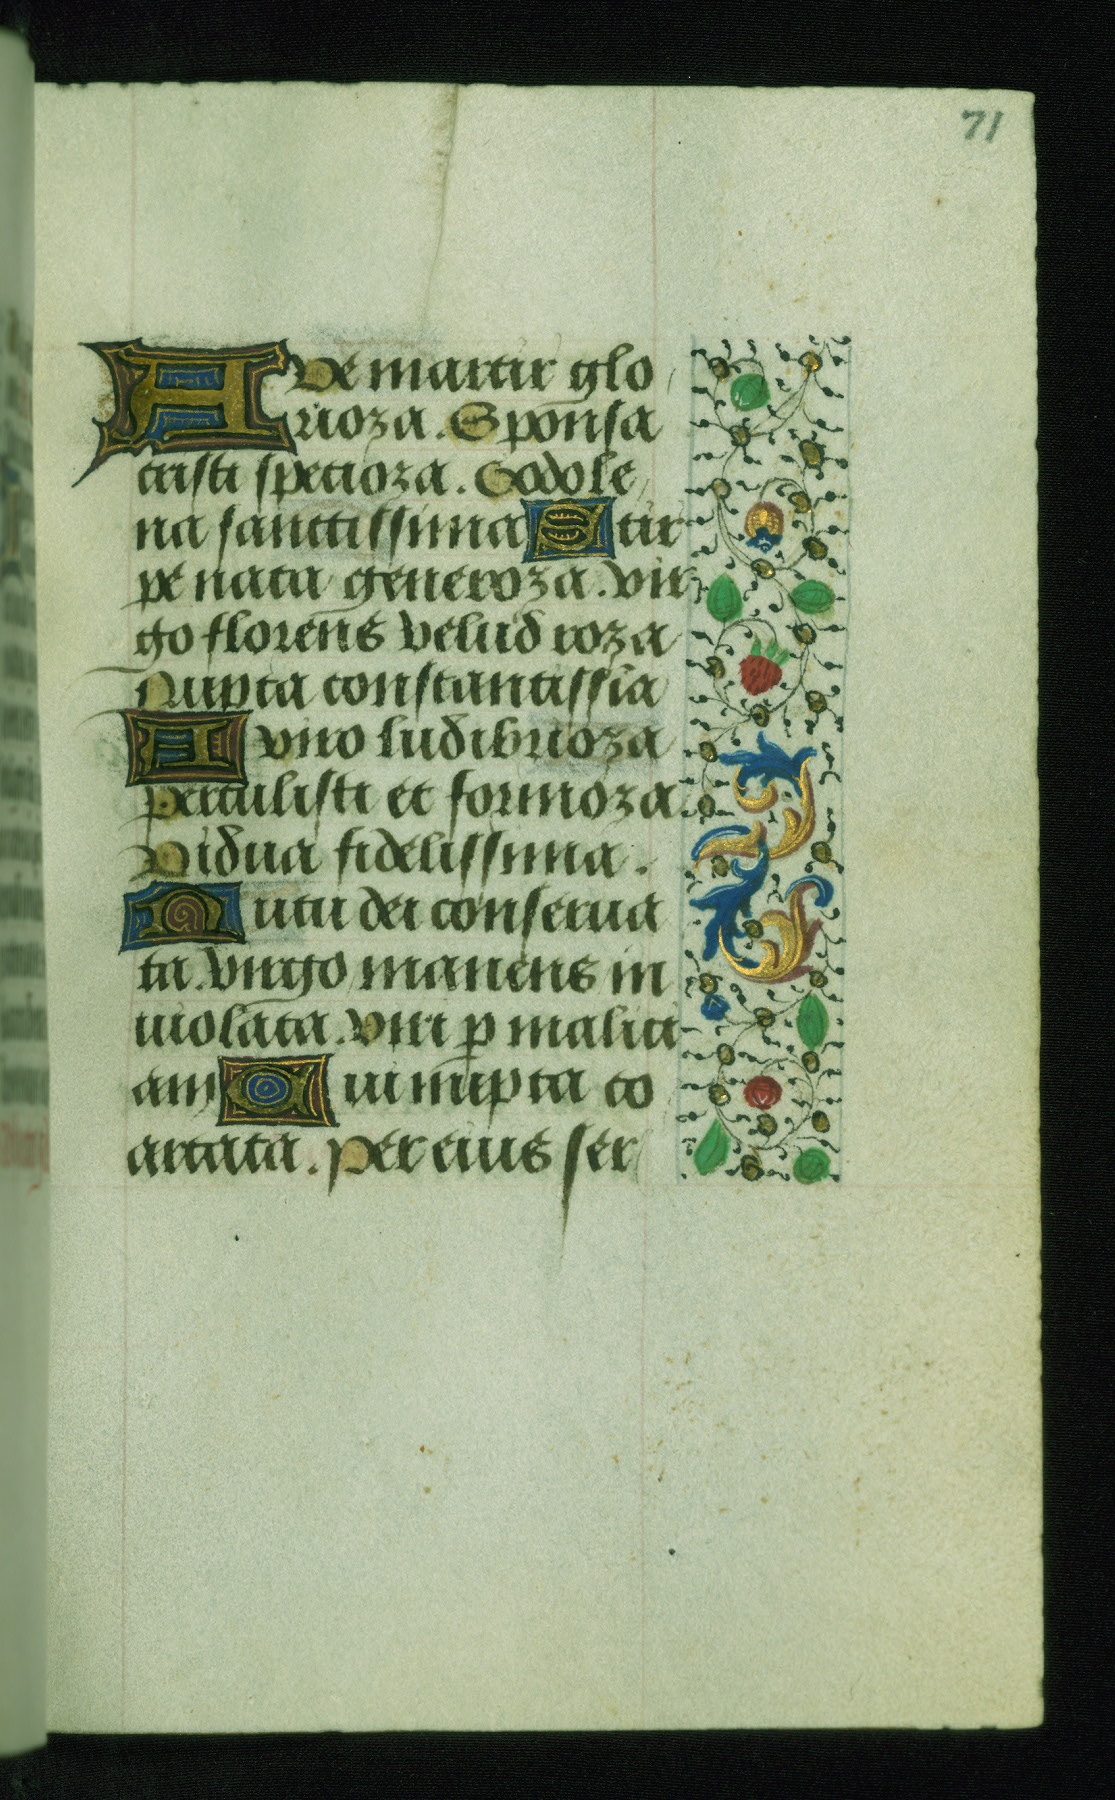 71
Ave martir glo
rioza. Sponsa
cristi specioza. Godole
na sanctissima Stir
pe nata generoza. Vir
go florens velud roza
Nupta constantissīa
A viro ludibrioza
Perculisti et formoza
Vidua fidelissima.
Nutu dei conserua
ta. Virgo manens in
uiolata. Viri p malici
am Cui nupta co
artata. Per eius ser